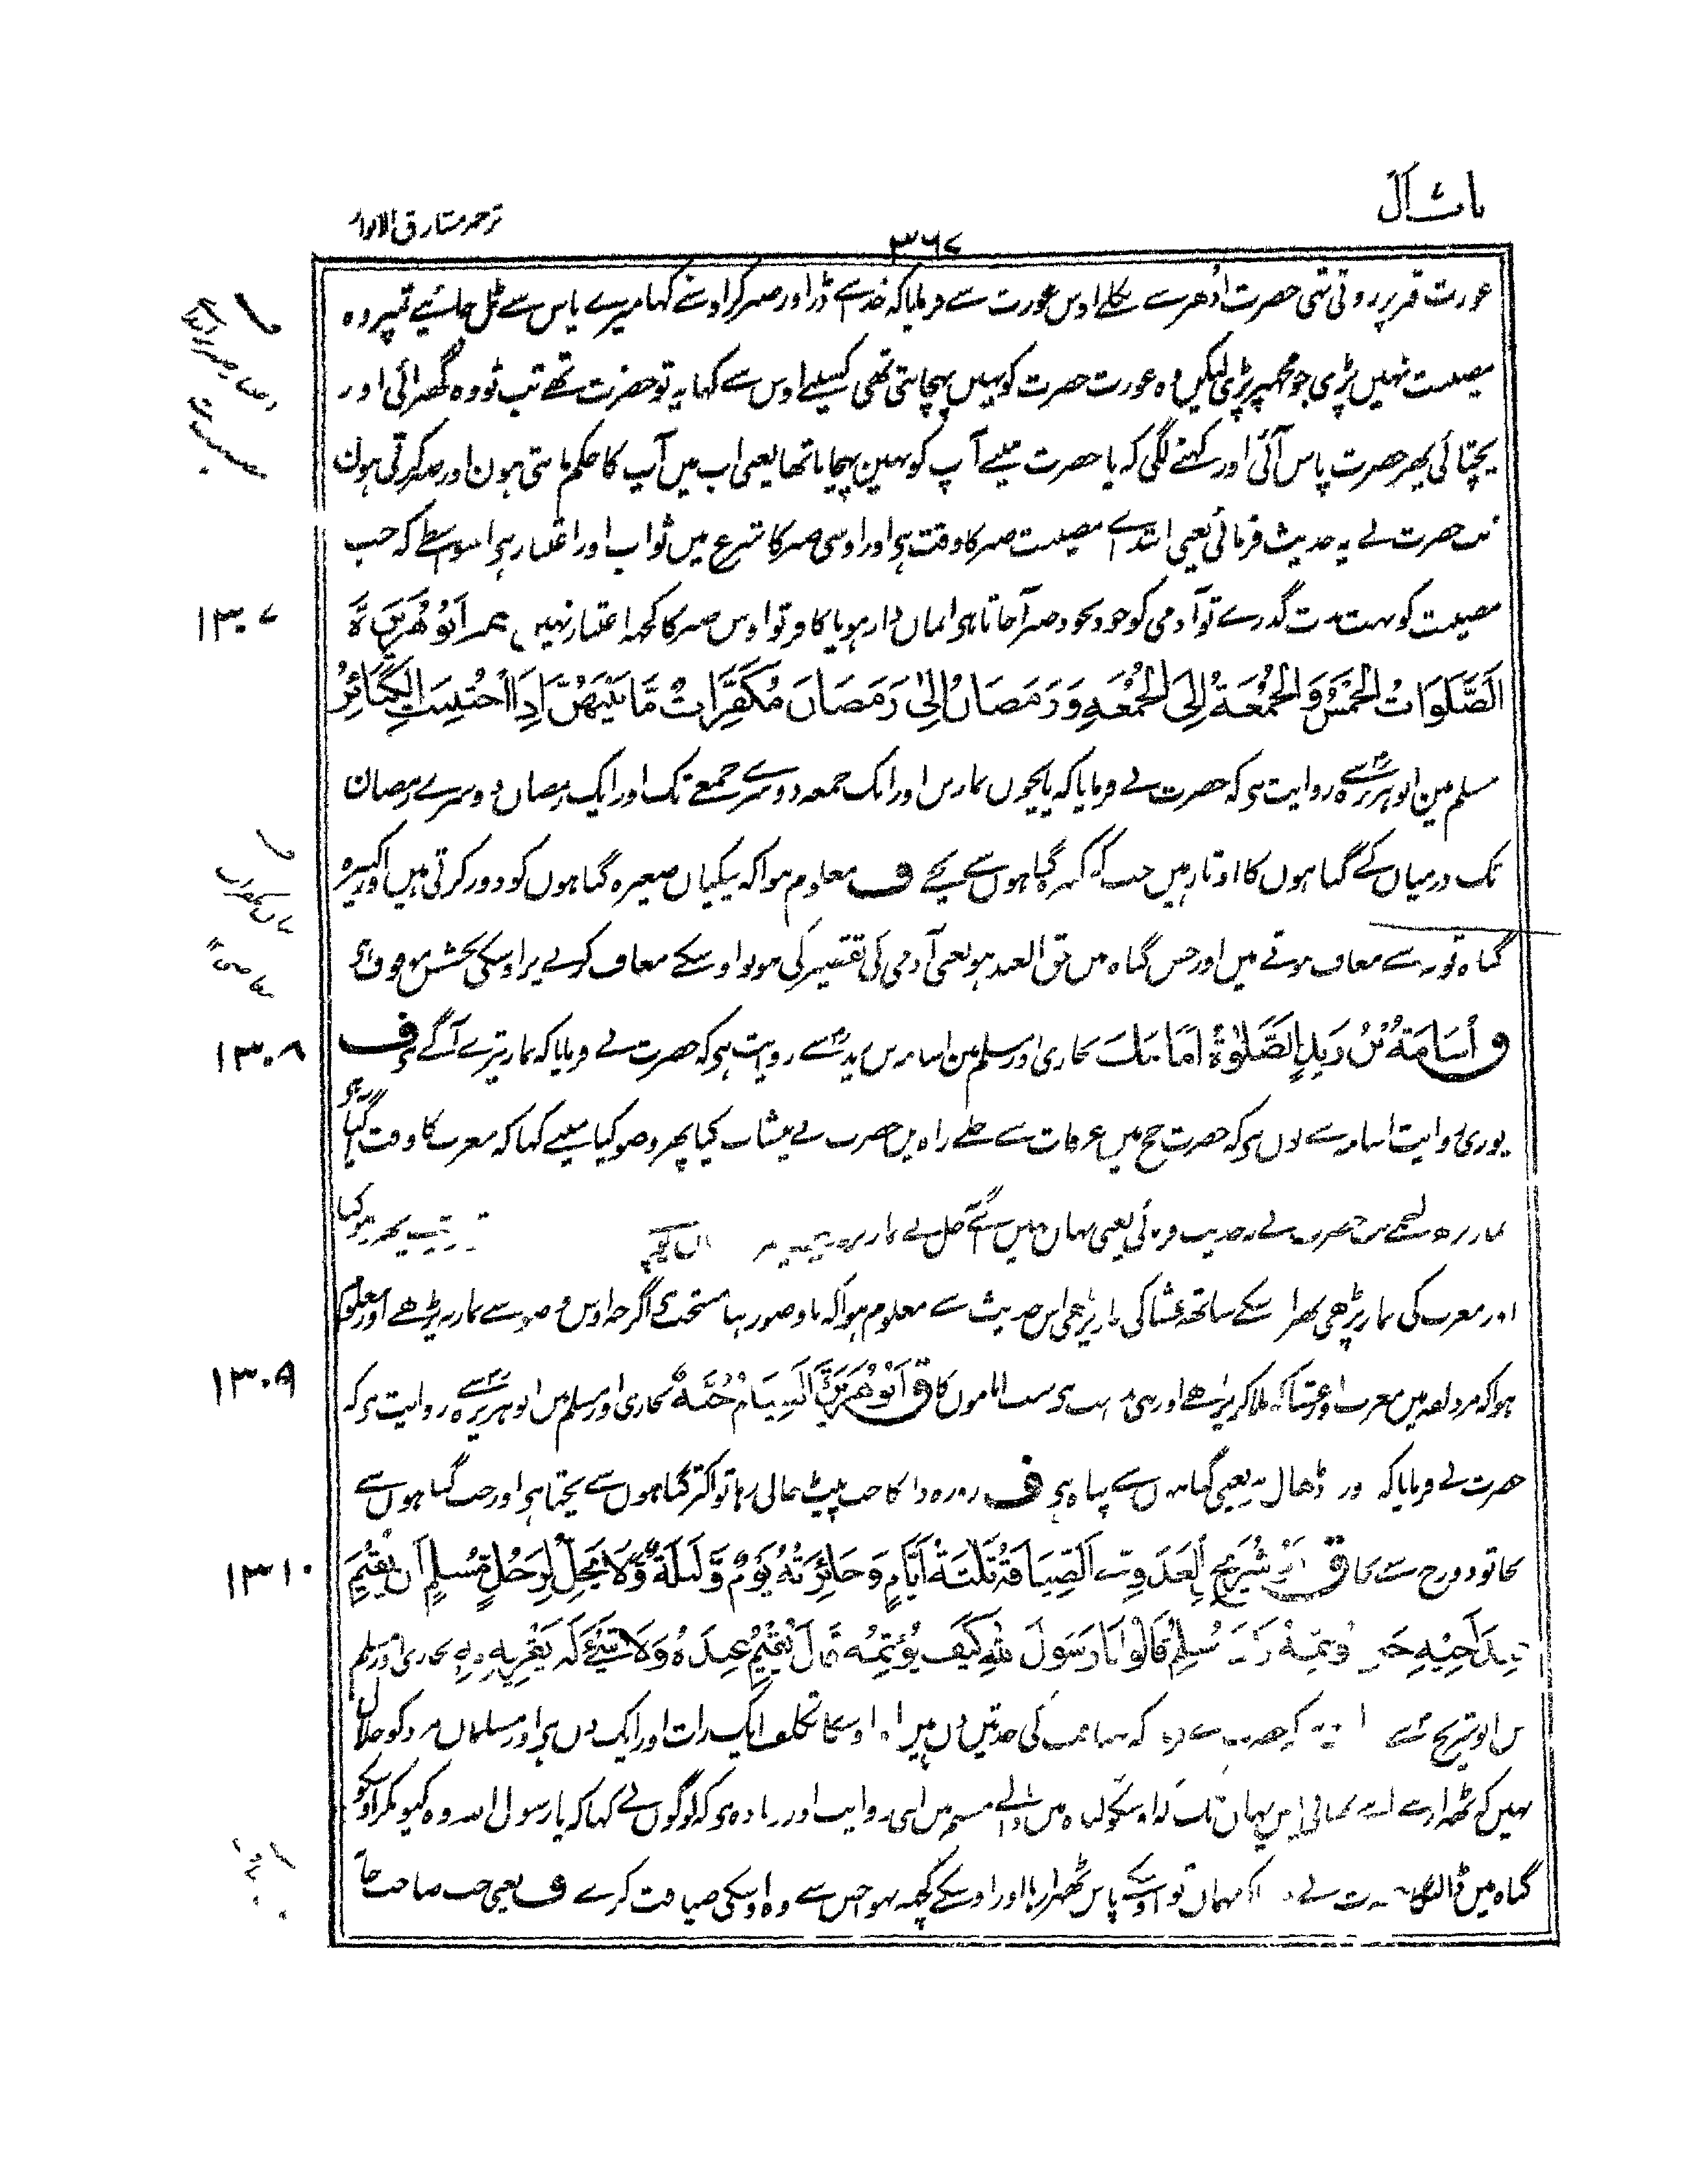 باب ال
۳۶۷
ترجمہ مشارق الانوار
عورت قبر پر روتی تھی حضرت اُدھر سے نکلے اوس عورت سے فرمایا کہ خدا سے ڈر اور صبر کر اوسنے کہا میرے پاس سے ٹل جائیے تمپر وہ
مصیبت نہیں پڑی جو مجھپر پڑی لیکن وہ عورت حضرت کو نہیں پہچانتی تھی کسینے اوس سے کہا یہ تو حضرت تھے تب تو وہ گھبرائی اور
پچتائی پھر حضرت پاس آئی اور کہنے لگی کہ یا حضرت مینے آپ کو نہین پہچانا تھا یعنی اب میں آپ کا حکم مانتی ہون اور صبر کرتی ہون
تب حضرت نے یہ حدیث فرمائی یعنی ابتداے مصیبت صبر کا وقت ہی اور اوسی صبر کا شرع میں ثواب اور اعتبار ہی اسواسطے کہ جب
مصیبت کو بہت مدت گذرے تو آدمی کو خود بخود صبر آجاتا ہی ایمان دار ہو یا کافر تو اوس صبر کا کچھہ اعتبار نہیں م اَبُو هُرَيْرَةَ
۱۳۰۷
اَلصَّلَوَاتُ الْخَمْسُ وَالْجُمُعَةُ اِلَى الْجُمُعَةِ وَرَمَضَانُ اِلٰى رَمَضَانَ مُكَفِّرَاتٌ مَّا بَيْنَهُنَّ اِذَا اجْتُنِبَتِ الْكَبَائِرُ
مسلم مین ابو ہریرہ رض سے روایت ہی کہ حضرت نے فرمایا کہ پانچوں نمازیں اور ایک جمعہ دوسرے جمعے تک اور ایک رمضان دوسرے رمضان
تک درمیان کے گناہوں کا اوتار ہیں جب کہ کبیرہ گناہوں سے بچے ف معلوم ہوا کہ نیکیاں صغیرہ گناہوں کو دور کرتی ہیں اور کبیرہ
گناہ توبہ سے معاف ہوتے ہیں اور جس گناہ میں حق العبد ہو یعنی آدمی کی تقصیر کی ہو تو اوسکے معاف کرنے پر اوسکی بخشش موقوف ہی
ق اُسَامَةُ بْنُ زَيْدٍ اَلصَّلٰوةُ اَمَامَكَ بخاری اور مسلم مین اسامہ بن زید رض سے روایت ہی کہ حضرت نے فرمایا کہ نماز تیرے آگے ہی ف
۱۳۰۸
پوری روایت اسامہ سے یوں ہی کہ حضرت حج میں عرفات سے چلے راہ میں حضرت نے پیشاب کیا پھر وضو کیا مینے کہا کہ مغرب کا وقت آگیا ہی
نماز پڑھ لیجیے تب حضرت نے یہ حدیث فرمائی یعنی یہاں نہیں آگے چل کے نماز پھر ہو گیا
اور مغرب کی نماز پڑھی پھر اسکے ساتھ عشا کی نماز پڑھی اس حدیث سے معلوم ہوا کہ باوضو رہنا مستحب ہی اگرچہ اوس وضو سے نماز نہ پڑھے اور معلوم
ہوا کہ مزدلفہ میں مغرب اور عشا کو ملا کر پڑھے اور یہی مذہب ہی سب اماموں کا ق اَبُو هُرَيْرَةَ اَلصِّيَامُ جُنَّةٌ بخاری اور مسلم میں ابو ہریرہ رض سے روایت ہی کہ
۱۳۰۹
حضرت نے فرمایا کہ ڈھال ہی یعنی گناہوں سے پناہ ہی ف روزہ دار کا جب پیٹ خالی رہا تو اکثر گناہوں سے بچتا ہی اور جب گناہوں سے
بچا تو دوزخ سے بچا ق اَبُو شُرَيْحٍ الْعَدَوِيُّ اَلضِّيَافَةُ ثَلٰثَةُ اَيَّامٍ وَجَائِزَتُهُ يَوْمٌ وَّلَيْلَةٌ وَّلَا يَحِلُّ لِرَجُلٍ مُّسْلِمٍ اَنْ يُّقِيْمَ
۱۳۱۰
عِنْدَ اَخِيْهِ حَتّٰى يُؤْثِمَهُ زَادَ مُسْلِمٌ قَالُوْا يَا رَسُوْلَ اللهِ كَيْفَ يُؤْثِمُهُ قَالَ يُقِيْمُ عِنْدَهُ وَلَا شَيْءَ لَهُ يَقْرِيْهِ بِهِ بخاری اور مسلم
میں ابو شریح رض سے کہ حضرت نے کہ ضیافت کی حد تین دن ہیں اور اوسکا تکلف ایک رات اور ایک دن ہی اور مسلمان مرد کو حلال
نہیں کہ ٹھہرا رہے اپنے بھائی پاس یہاں تک کہ اوسکو گناہ میں ڈالے مسلم میں اتنی روایت اور زیادہ ہی کہ لوگوں نے کہا کہ یا رسول اللہ وہ کیونکر اوسکو
گناہ میں ڈالیگا حضرت نے کہ مہمان تو اوسکے پاس ٹھہرا رہا اور اوسکے کچھہ نہو جس سے وہ اوسکی ضیافت کرے ف یعنی جب صاحب خا